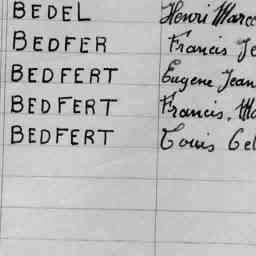 BEDEL Henri Marce
BEDFER Francis Je
BEDFERT Eugene Jean
BEDFERT Francis. Ma
BEDFERT Louis Cel